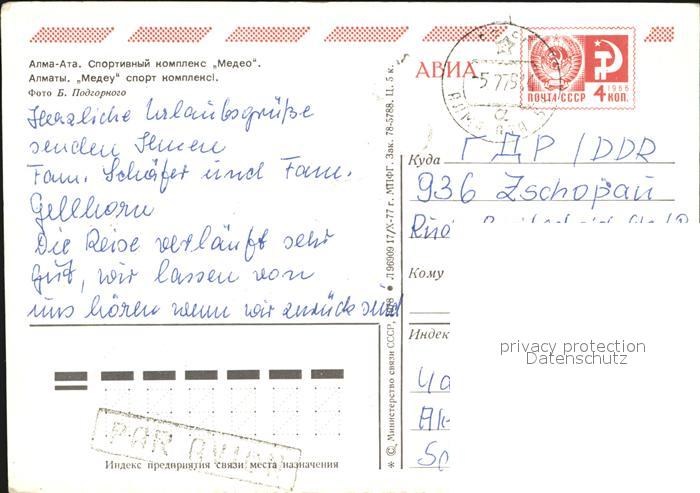 Алма-Ата. Спортивный комплекс „Медео".
Алматы. „Медеу" спорт комплексі.
Фото Б. Подгорного
Herzliche Urlaubsgrüße
senden Ihnen
Fam. Schäfer und Fam.
Gellhorn
Die Reise verläuft sehr
gut, wir lassen von
uns hören wenn wir zurück sind
PAR AVION
Индекс предприятия связи места назначения
* © Министерство связи СССР, 1978 • Л96909 17/X-77 г. МПФГ. Зак. 78-5788. Ц. 5 к.
АВИА
ПОЧТА СССР 4 КОП.
1966
Куда ГДР / DDR
936 Zschopau
Кому
Индек
privacy protection
Datenschutz